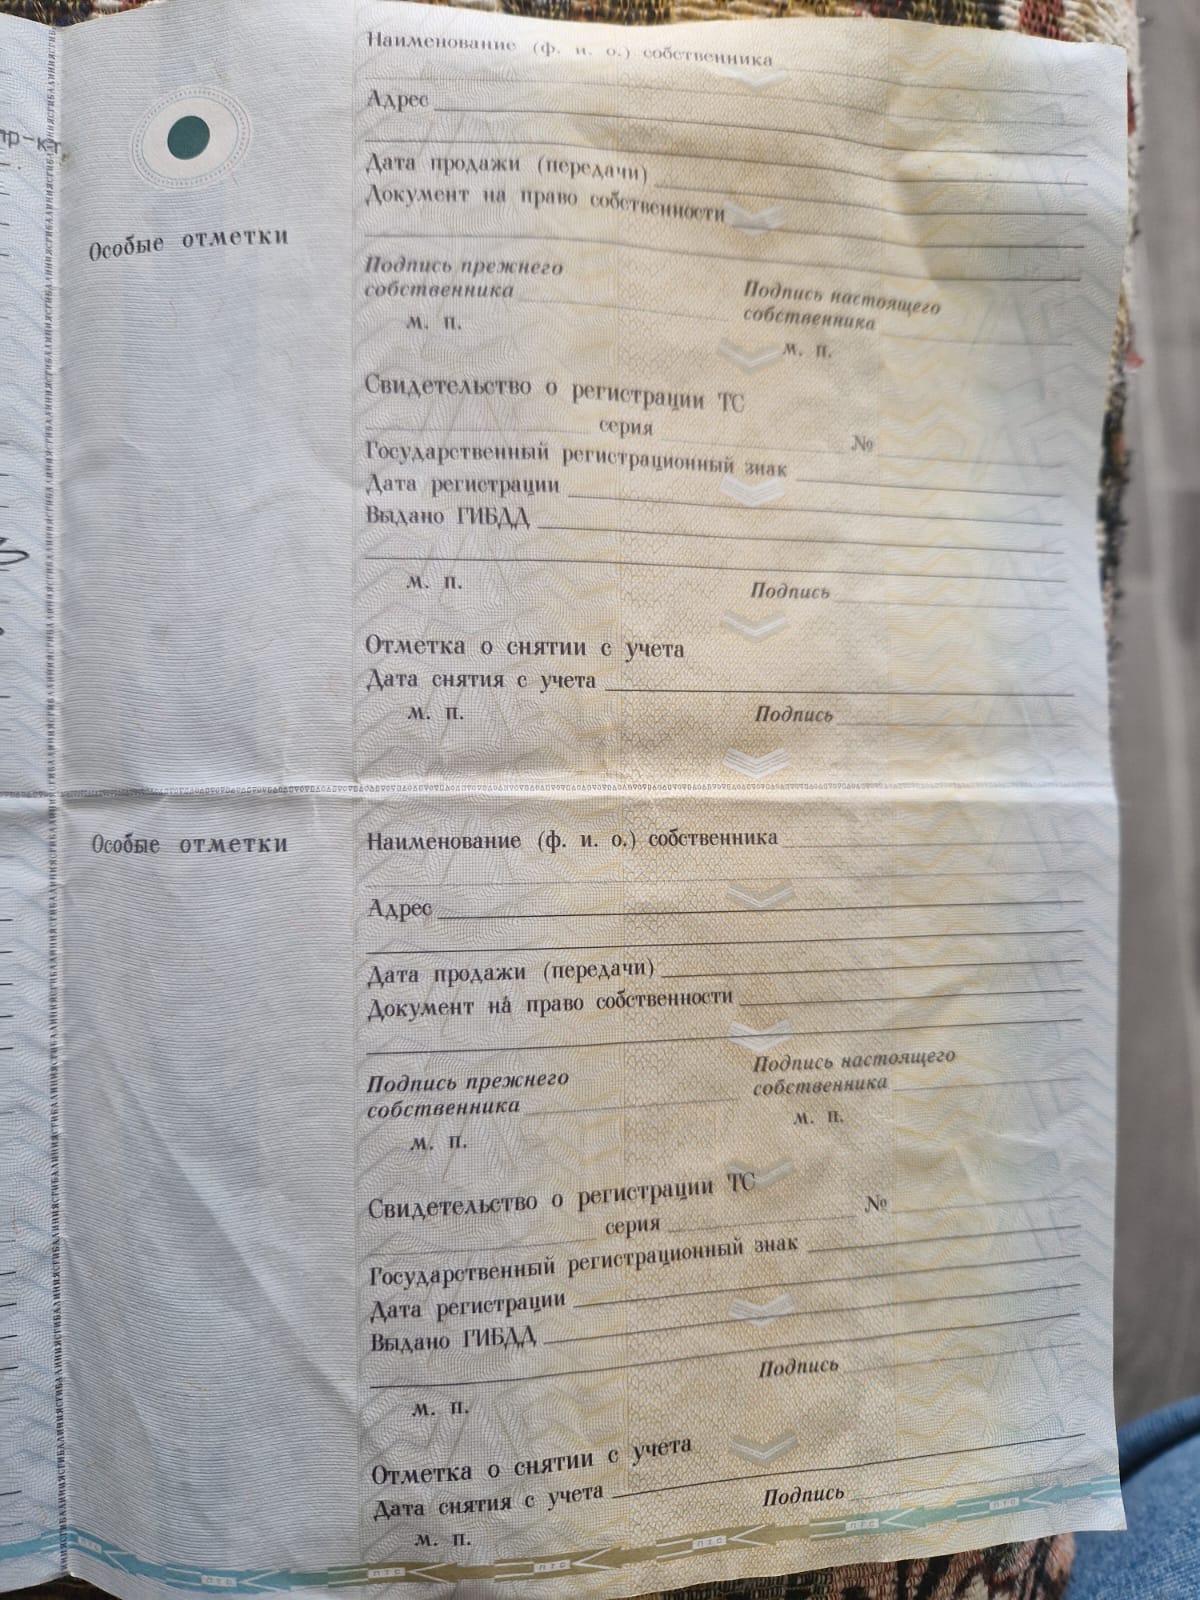 пр-кт
Особые отметки
Наименование (ф. и. о.) собственника
Адрес
Дата продажи (передачи)
Документ на право собственности
Подпись прежнего
собственника
Подпись настоящего
собственника
м. п.
м. п.
Свидетельство о регистрации ТС
серия №
Государственный регистрационный знак
Дата регистрации
Выдано ГИБДД
м. п. Подпись
Отметка о снятии с учета
Дата снятия с учета
м. п. Подпись
Особые отметки
Наименование (ф. и. о.) собственника
Адрес
Дата продажи (передачи)
Документ на право собственности
Подпись прежнего
собственника
Подпись настоящего
собственника
м. п.
м. п.
Свидетельство о регистрации ТС
серия №
Государственный регистрационный знак
Дата регистрации
Выдано ГИБДД
Подпись
м. п.
Отметка о снятии с учета
Дата снятия с учета
Подпись
м. п.
ПТС ПТС ПТС ПТС ПТС ПТС ПТС